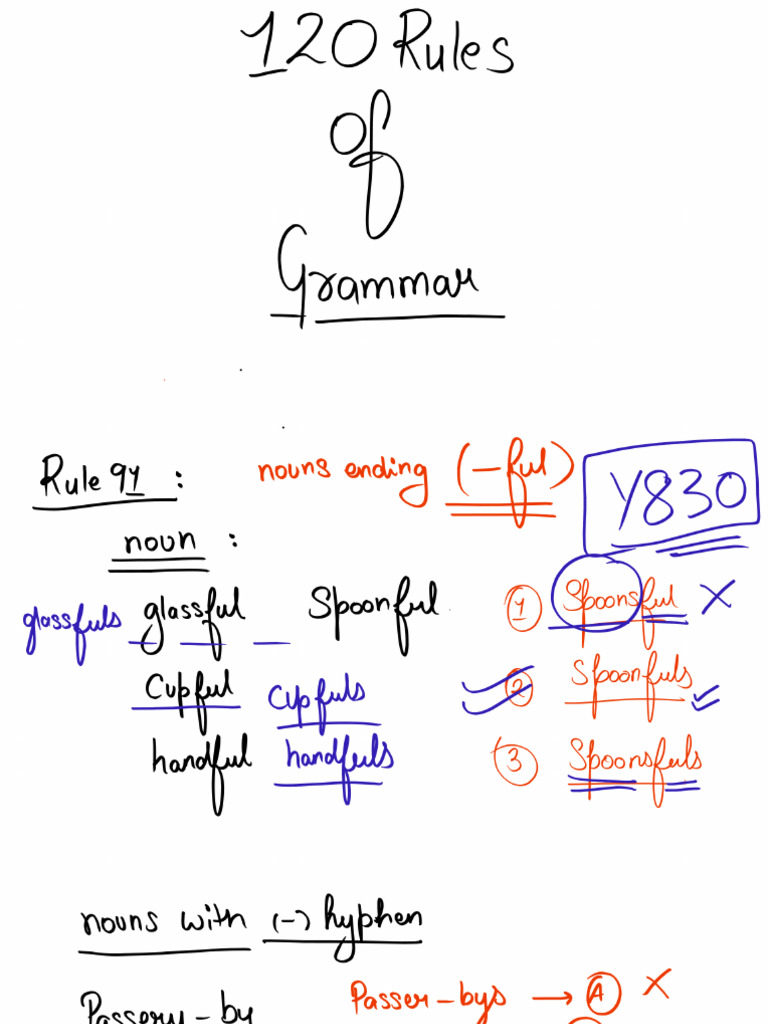 120 Rules
of
Grammar
Rule 91 : nouns ending (-ful)
Y830
noun :
glassfuls glassful Spoonful ① Spoonsful X
Cupful Cupfuls ② Spoonfuls ✓
handful handfuls ③ Spoonsfuls
nouns with (-) hyphen
Passer-bys → Ⓐ X
Passery-by